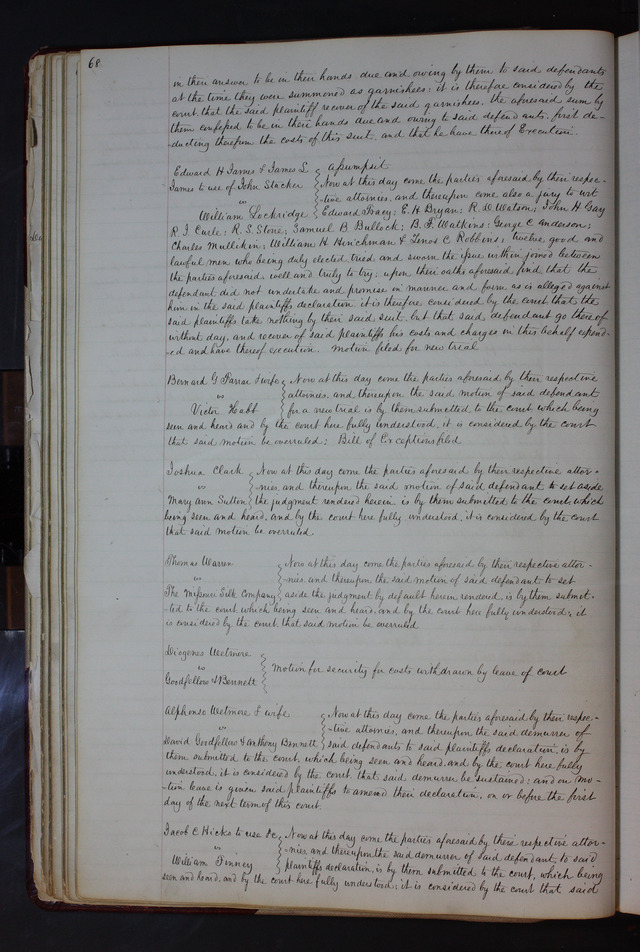 68
in their answer to be in their hands due and owing by them to said defendants
at the time they were summoned as garnishees: it is therefore considered by the
court that the said plaintiff recover of the said garnishees the aforesaid sum by
them confessed to be in their hands due and owing to said defendants, first de-
-ducting therefrom the costs of this suit. and that he have thereof Execution.
Edward H James & James L assumpsit
James to use of John Stacker Now at this day come the parties aforesaid by their respec-
vs -tive attornies, and thereupon come also a jury to wit
William Lockridge Edward Tracy; E. H. Bryan; R. D. Watson; John H. Gay
R. J Curle; R. S. Stone; Samuel B Bullock; B. F. Watkins; George C Anderson;
Charles Mullikin; William H Hinchman & C Robbins; twelve good and
lawful men who being duly elected tried and sworn the issue within joined between
the parties aforesaid well and truly to try: upon their oaths aforesaid find that the
defendant did not undertake and promise in manner and form as is alleged against
him in the said plaintiffs declaration it is therefore considered by the court that the
said plaintiffs take nothing by their said suit. but that said defendant go thereof
without day, and recover of said plaintiffs his costs and charges in this behalf expend-
-ed and have thereof execution. Motion filed for new trial
Bernard G Farrar & wife Now at this day come the parties aforesaid by their respective
vs attornies, and thereupon the said motion of said defendant
Victor Habt for a new trial is by them submitted to the court which being
seen and heard and by the court here fully understood, it is considered by the court
that said motion be overruled; Bill of Exceptions filed
Joshua Clark Now at this day come the parties aforesaid by their respective attor-
vs -nies, and thereupon the said motion of said defendant to set aside
Mary Ann Sutton the judgment rendered herein is by them submitted to the court, which
being seen and heard, and by the court here fully understood, it is considered by the court
that said motion be overruled.
Thomas Warren Now at this day come the parties aforesaid by their respective attor-
vs -nies, and thereupon the said motion of said defendant to set
The Missouri Silk Company aside the judgment by default herein rendered, is by them submit-
-ted to the court, which being seen and heard, and by the court here fully understood; it
is considered by the court that said motion be overruled
Diogenes Wetmore
vs Motion for security for costs withdrawn by leave of court
Goodfellow & Bennett
Alphonso Wetmore & wife Now at this day come the parties aforesaid by their respec-
vs -tive attornies, and thereupon the said demurrer of
David Goodfellow & Anthony Bennett said defendants to said plaintiffs declaration, is by
them submitted to the court, which being seen and heard, and by the court here fully
understood, it is considered by the court, that said demurrer be sustained; and on mo-
-tion leave is given said plaintiffs to amend their declaration, on or before the first
day of the next term of this court.
Jacob C Hicks to use &c Now at this day come the parties aforesaid by their respective attor-
vs -nies, and thereupon the said demurrer of said defendant, to said
William Finney plaintiffs declaration, is by them submitted to the court, which being
seen and heard, and by the court here fully understood; it is considered by the court that said